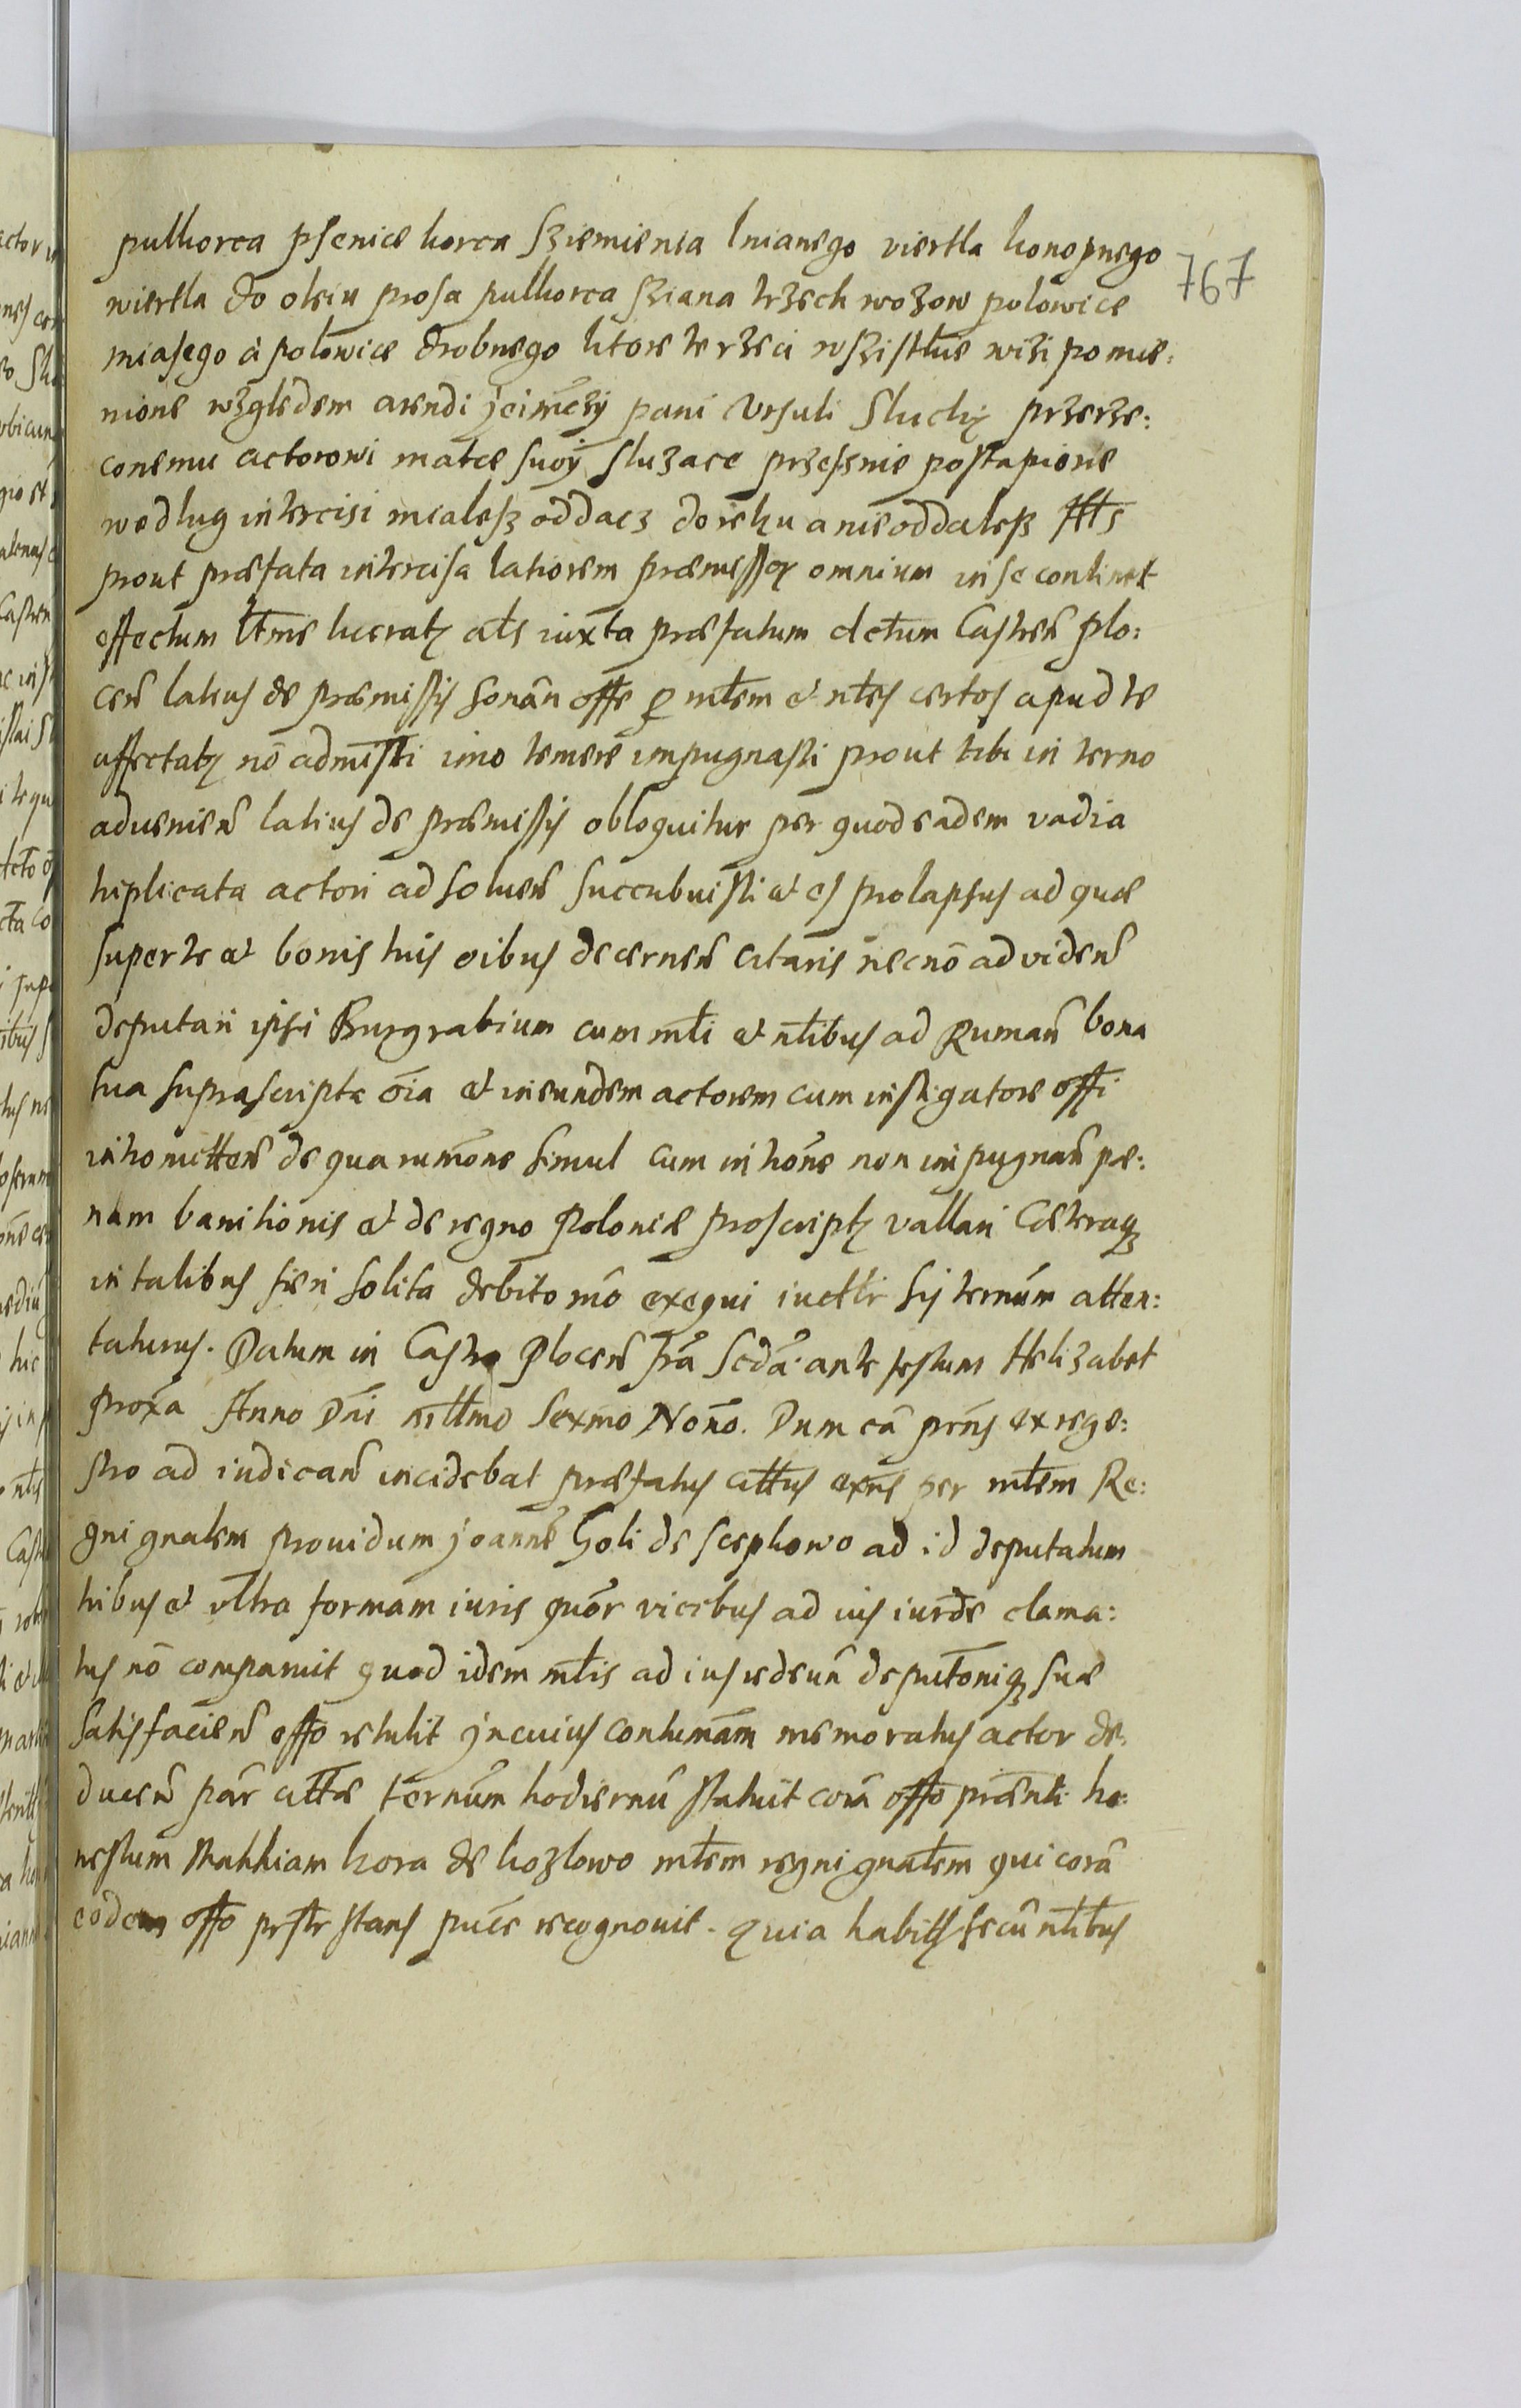 pulkorca psenice korca sziemienia lnianego viertla konopnego
767
wiertla do oleiu prosa pulkorca sziana trzech wozow polowice
miasego à polowice drobnego ktore te rzeci wszistkie wizi pomie:
nione wzgledem arendi jeimczÿ pani Vrsuli Sluckÿ przerze:
conemu actorowi matce suoÿ sluzace przessnie postapione
wedlug intercisi mialesz oddacz do reku a nie oddalesz
prout præfata intercisa latiorem præmissor omnium in se continet
effectum ltme lucratq als iuxta præfatum dctum Castren Plo:
cen latius de præmissis sonan offe p mtem et ntes certos apud te
affectatq nō admisti imo temere impugnasti prout tibi in termo
aduenien latius de præmissis obloquitur per quod eadem vadia
triplicata actori ad soluen succubuisti et es prolapsus ad quæ
super te et bonis tuis oibus decernen citaris necnō ad viden
deputari ipsi Burgrabium cum mti et ntibus ad Ruman bona
tua suprascripta oia et in eundem actorem cum instigatore offi
intromitten de qua rumone simul cum intrōne non impugnan pæ:
nam banitionis et de regno Poloniæ proscriptq vallari Cæteraq
in talibus fieri solita debito mō exequi iuctlr sis ternum atten:
taturus. Datum in Castro Plocen fra Scda ante festum Helizabet
proxa Anno Dni mllmo Sexmo Nono. Dum cā prns ex rege:
stro ad iudican incidebat præfatus cittus exns per mtem Re:
gni gnalem prouidum joannē Goli de scephowo ad id deputatum
tribus et vltra formam iuris quor vicibus ad ius iurde clama:
tus nō comparuit quod idem mtis ad ius redeun deputoniq suæ
satisfacien offo retulit jn cuius contumam memoratus actor de:
ducen par cittæ ternum hodiernū statuit corā offo præsnti ho:
nestum Mathiam kora de kozlowo mtem regni gnatem qui corā
eodem offo prstr stans puce recognouit. quia habitis secū ntibus